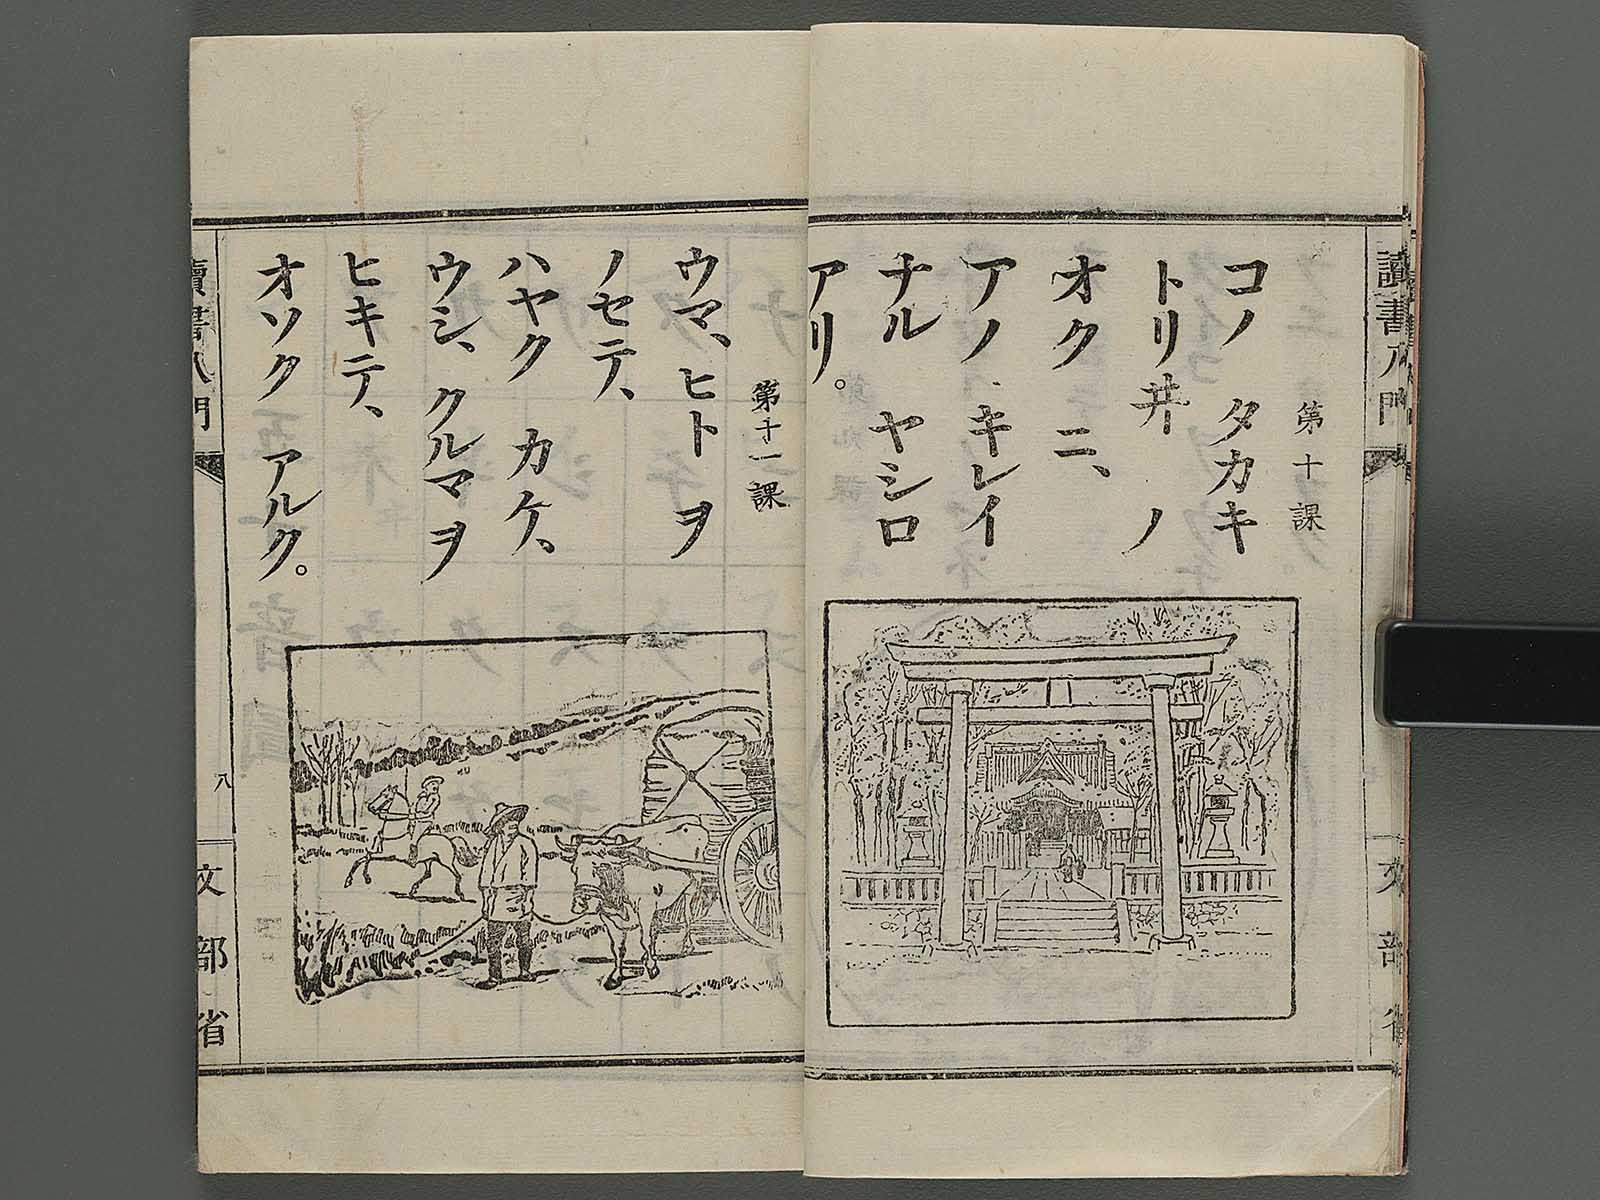 讀書入門
文部省
第十課
コノ タカキ
トリ井 ノ
オク ニ、
アノ キレイ
ナル ヤシロ
アリ。
第十一課
ウマ、ヒト ヲ
ノセテ、
ハヤク カケ、
ウシ、クルマヲ
ヒキテ、
オソク アルク。
讀書入門
八
文部省